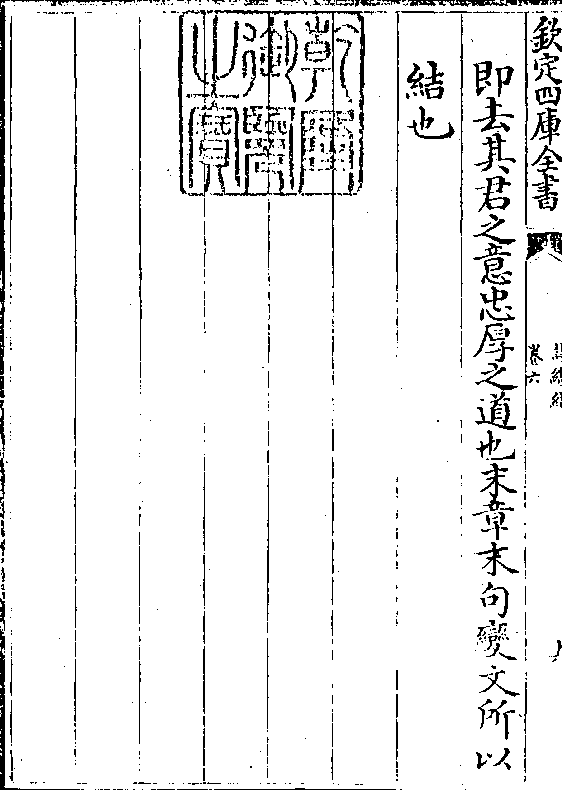 欽定四庫全書
卷六
即去其君之意忠厚之道也末章末句變文所以
結也
乾隆御覽之寶